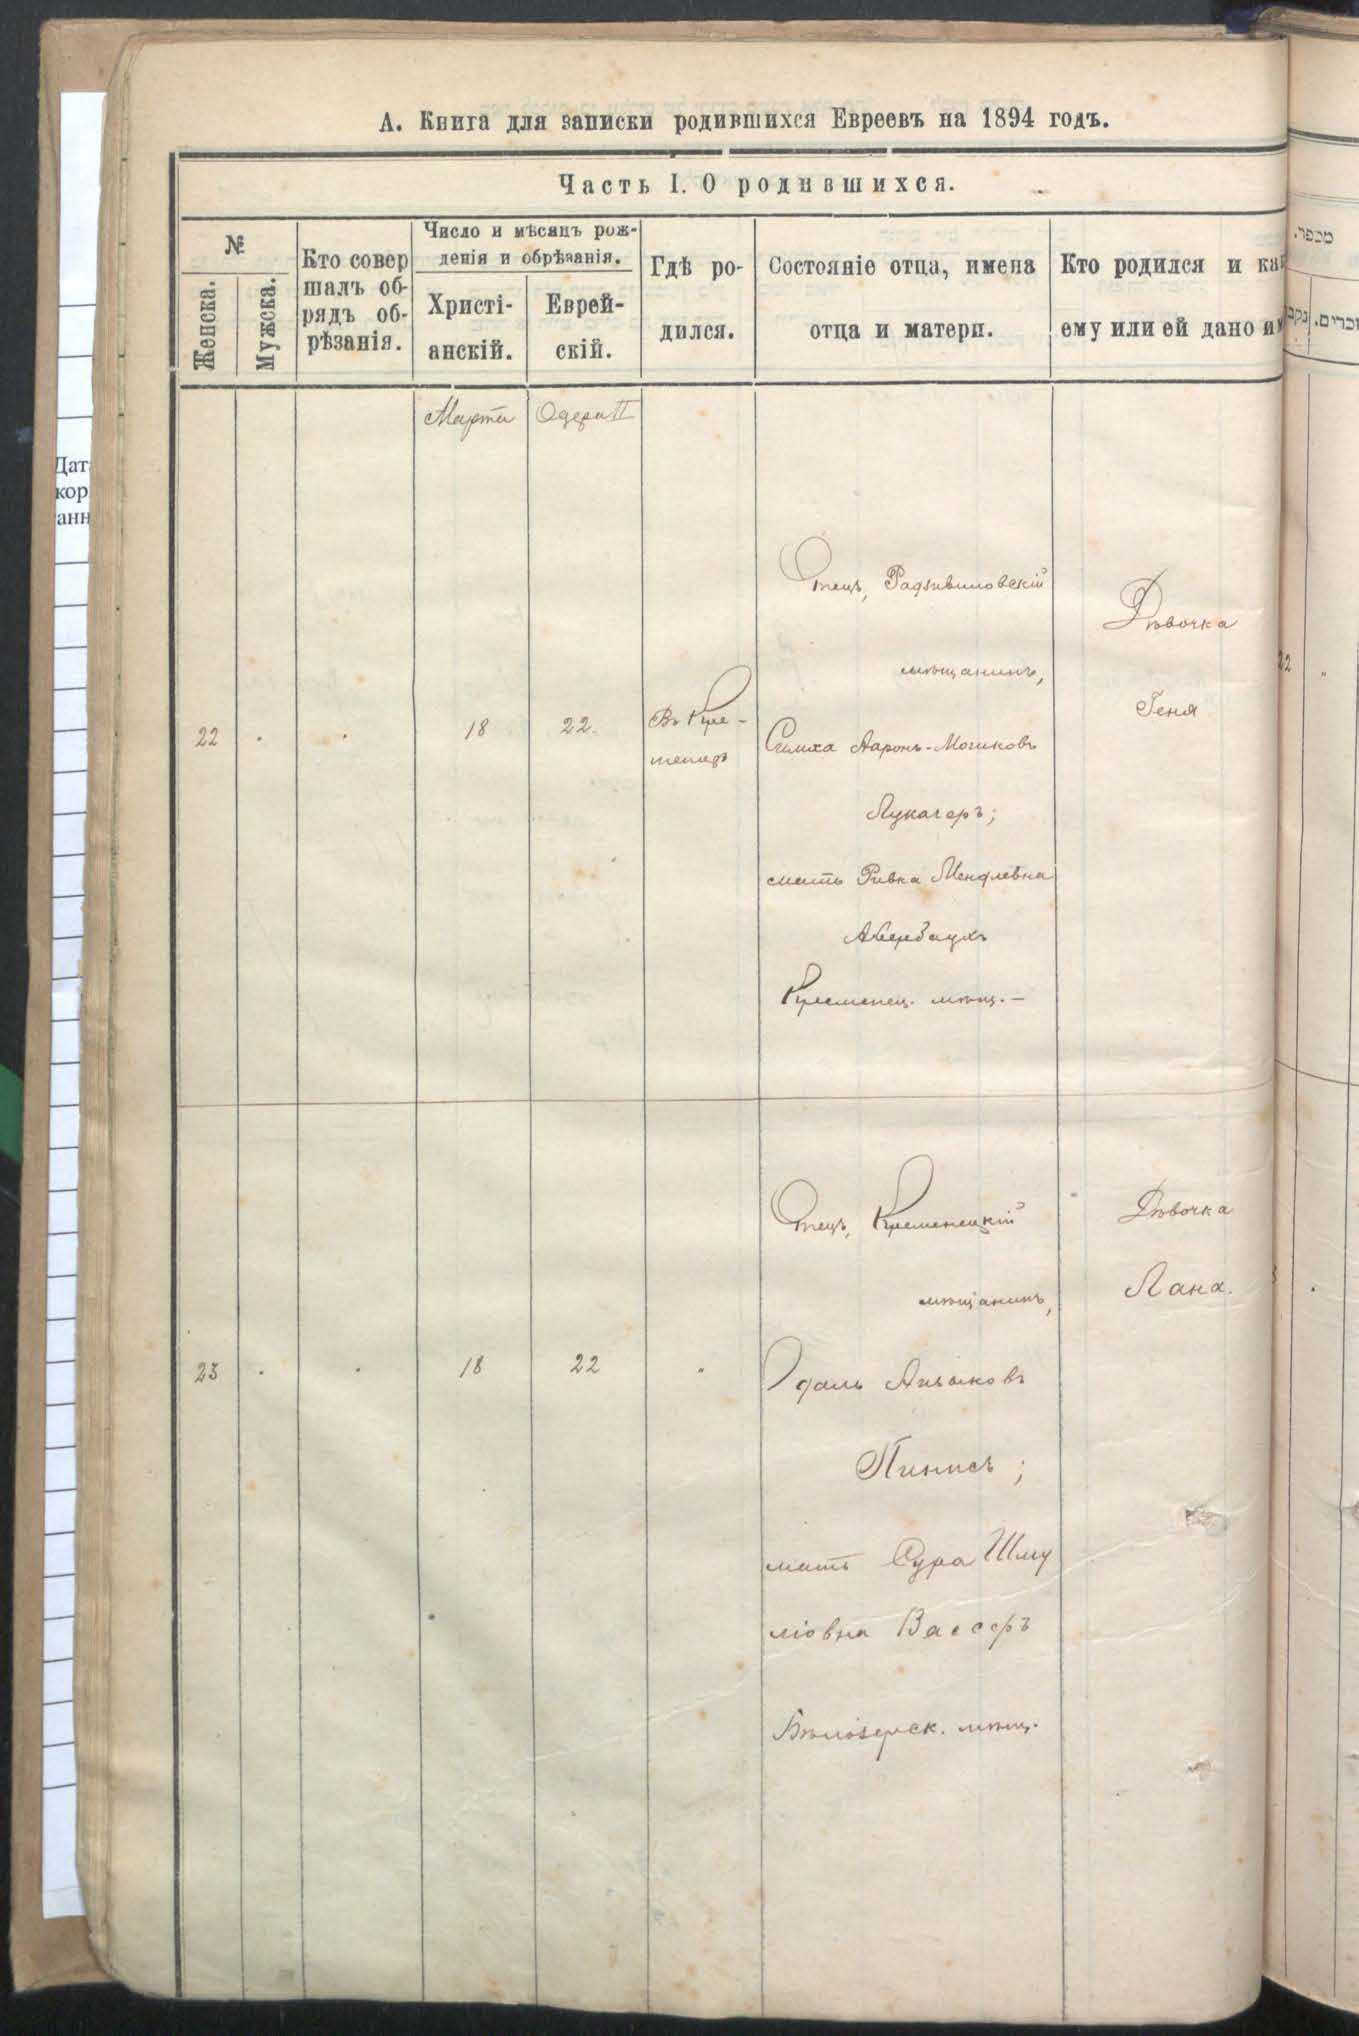 А. Книга для записки родившихся Евреевъ на 1894 годъ.
Часть I. О родившихся.
№
Женска.
Мужска.
Кто совер
шалъ об-
рядъ об-
рѣзанія.
Число и мѣсяцъ рож-
денія и обрѣзанія.
Христі-
анскій.
Еврей-
скій.
Гдѣ ро-
дился.
Состояніе отца, имена
отца и матери.
Кто родился и как
ему или ей дано им
Марта
Одера II
22
18
22.
Въ Кре-
менцѣ
Отецъ, Радзивиловскій
мѣщанинъ,
Симха Ааронъ-Мошковъ
Лукачеръ;
мать Ривка Менделевна
Авербаухъ
Кременец. мѣщ. —
Дѣвочка
Геня
23
18
22
Отецъ, Кременецкій
мѣщанинъ,
Удаль Айзиковъ
Пинисъ;
мать Сура Шму
ліовна Вассеръ
Бѣлозерск. мѣщ.
Дѣвочка
Лана.
22
מספר.
נקבו
זכרים.
Дат
кор
анн